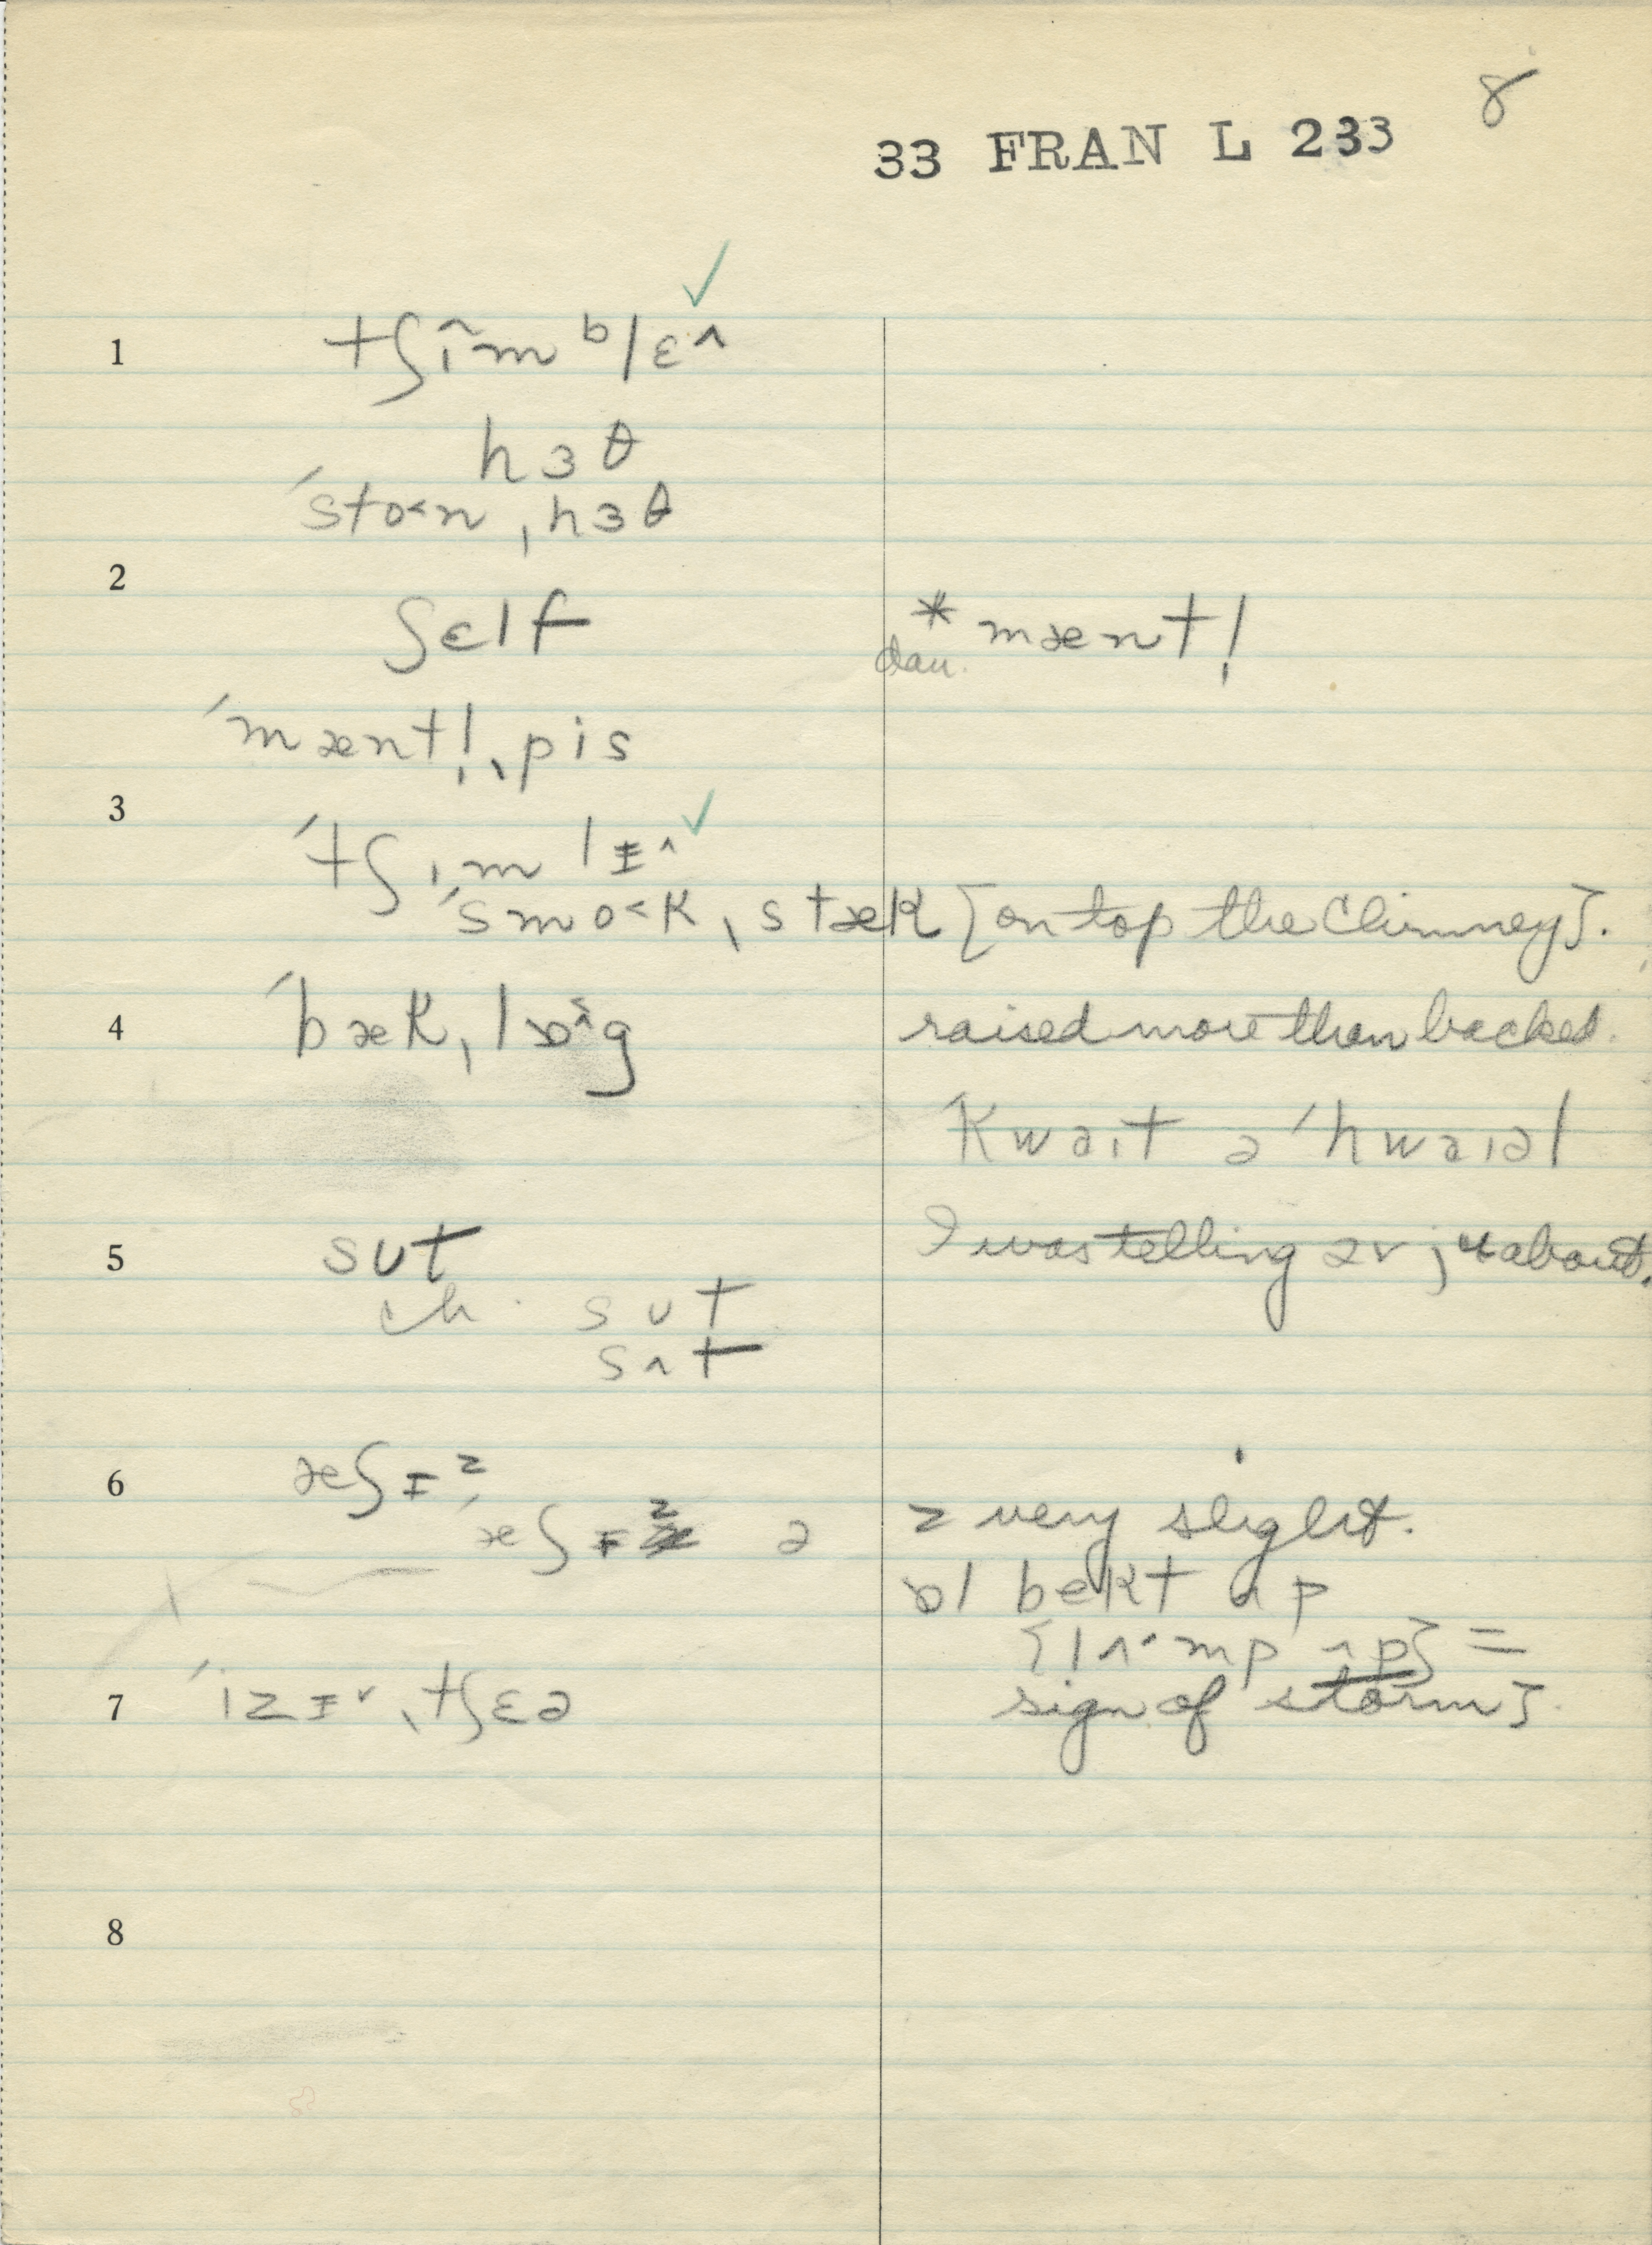 8
33 FRAN L 233
1 tʃĩm ᵇlɛ^
hɜθ
ˈsto<n ˌhɜθ
2 ʃɛlf
* mænt!̩
dau.
ˈmæntl̩ ˌpis
3 ˈtʃɪmlɪ^
ˈsmo<k ˌstæk [on top the Chimney].
4 ˈbæk ˌlɒg raised more than backed.
ˈkwaɪt ə ˈhwaɪəl
5 sʊt I was telling əv jʉ about.
ch. sʊt
sʌt
6 æʃɪᶻ
ˈæʃɪᶻ ə z very slight.
ɒl bekt ʌp
{lʌ·mp ʌp} =
sign of storm}.
7 ˈizɪ˅ ˌtʃɛə
8